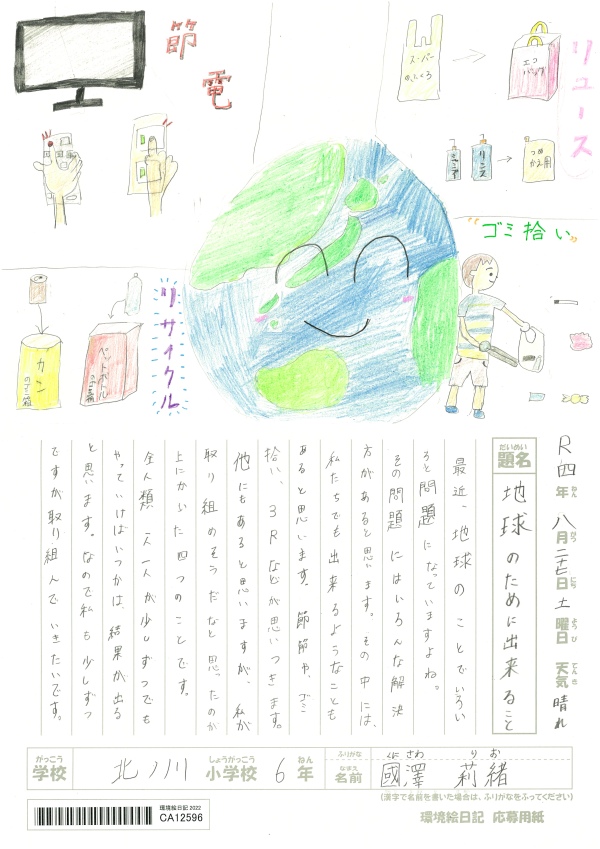 節電
スーパー
のふくろ
エコ
バッグ
リユース
シャンプー
リンス
つめ
かえ用
"ゴミ拾い"
リサイクル
カン
のゴミ箱
ペットボトル
のゴミ箱
R四年ねん八月がつ二七日にち土曜日ようび天気てんき晴れ
題名だいめい 地球のために出来ること
最近、地球のことでいろい
ろと問題になっていますよね。
その問題にはいろんな解決
方があると思います。その中には、
私たちでも出来るようなことも
あると思います。節電や、ゴミ
拾い、3Rなどが思いつきます。
他にもあると思いますが、私が
取り組めそうだなと思ったのが
上にかいた四つのことです。
全人類一人一人が少しずつでも
やっていけばいつかは、結果が出る
と思います。なので私も少しずつ
ですが取り組んでいきたいです。
がっこう 学校 北ノ川 しょうがっこう 小学校 6 ねん 年 ふりがな なまえ 名前 くにさわ りお 國澤 莉緒
(漢字で名前を書いた場合は、ふりがなをふってください)
環境絵日記 2022
CA12596
環境絵日記 応募用紙